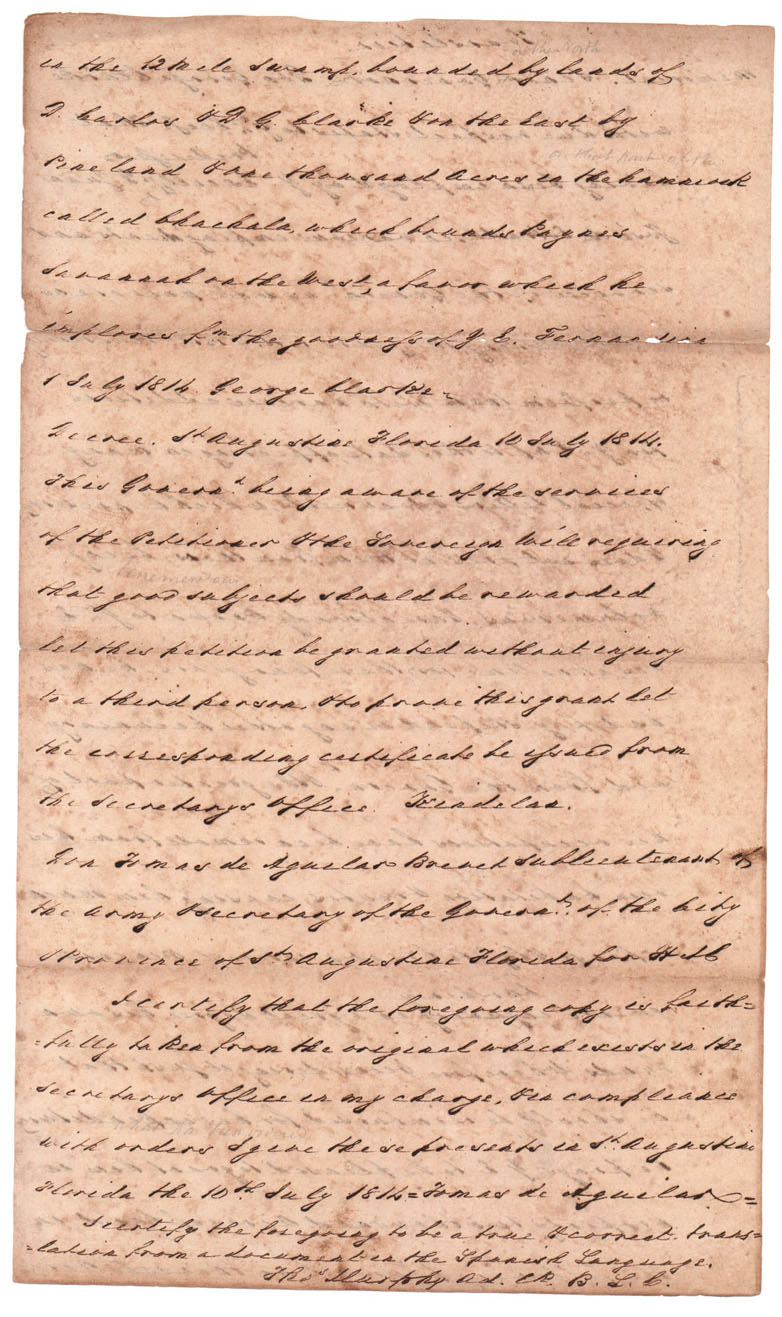 on the north
in the 12 Mile Swamp, bounded by lands of
D. Carlos & D. G. Clarke & on the East by
on that part of the
Pine land & one thousand Acres in the hammock
called Chachala, which bounds Paynes
Savannah on the West, a favor which he
implores fm. the goodness of Y. E. Fernandina
1 July 1814 George Clarke =
Decree. St. Augustine Florida 10 July 1814.
This Governt. being aware of the services
of the Petitioner & the Sovereign Will requiring
that good subjects should be rewarded
let this petition be granted without injury
to a third person, & to prove this grant let
the corresponding certificate be issued from
the Secretarys Office. Kindelan.
Don Tomas de Aguilar Brevet Sublieutenant of
the Army & Secretary of the Governt. of the City
& Province of St. Augustine Florida for H M C
I certify that the foregoing copy is faith=
=fully taken from the original which exists in the
secretarys Office in my charge, & in compliance
with orders I give these presents in St. Augustine
Florida the 10th. July 1814 = Tomas de Aguilar =
I certify the foregoing to be a true & correct trans=
=lation from a document in the Spanish Language.
Thos. Murphy Ad. Ck. B. L. C.